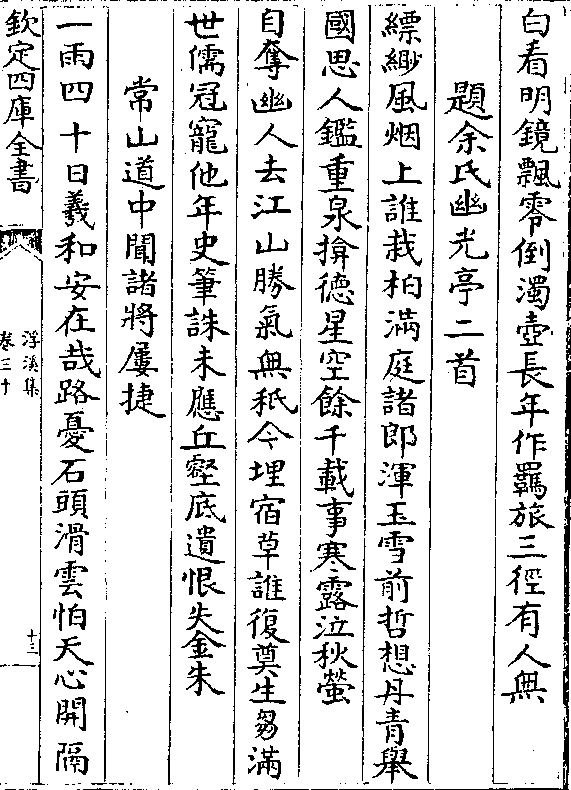 白看明鏡飄零倒濁壺長年作羈旅三徑有人無
題余氏幽光亭二首
縹緲風烟上誰栽柏滿庭諸郎渾玉雪前哲想丹青舉
國思人鑑重泉揜德星空餘千載事寒露泣秋螢
自奪幽人去江山勝氣無秖今埋宿草誰復奠生芻滿
世儒冠寵他年史筆誅未應丘壑底遺恨失金朱
常山道中聞諸將屢捷
一雨四十日羲和安在哉路憂石頭滑雲怕天心開隔
欽定四庫全書
浮溪集
卷三十
十三